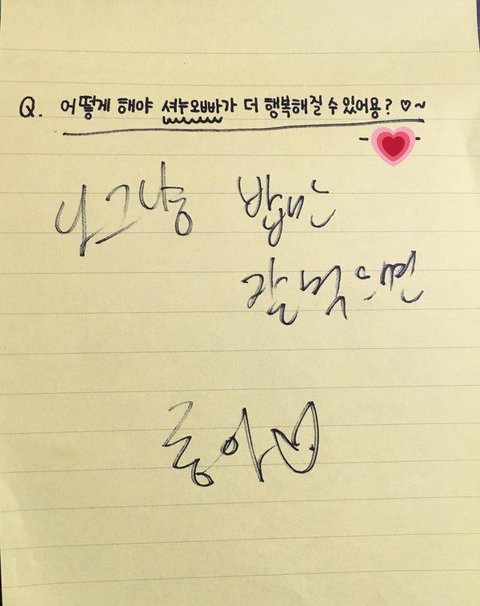 Q. 어떻게 해야 셔누오빠가 더 행복해질 수 있어용? ♡~
나 그냥 밥만
잘 먹으면
좋아♡